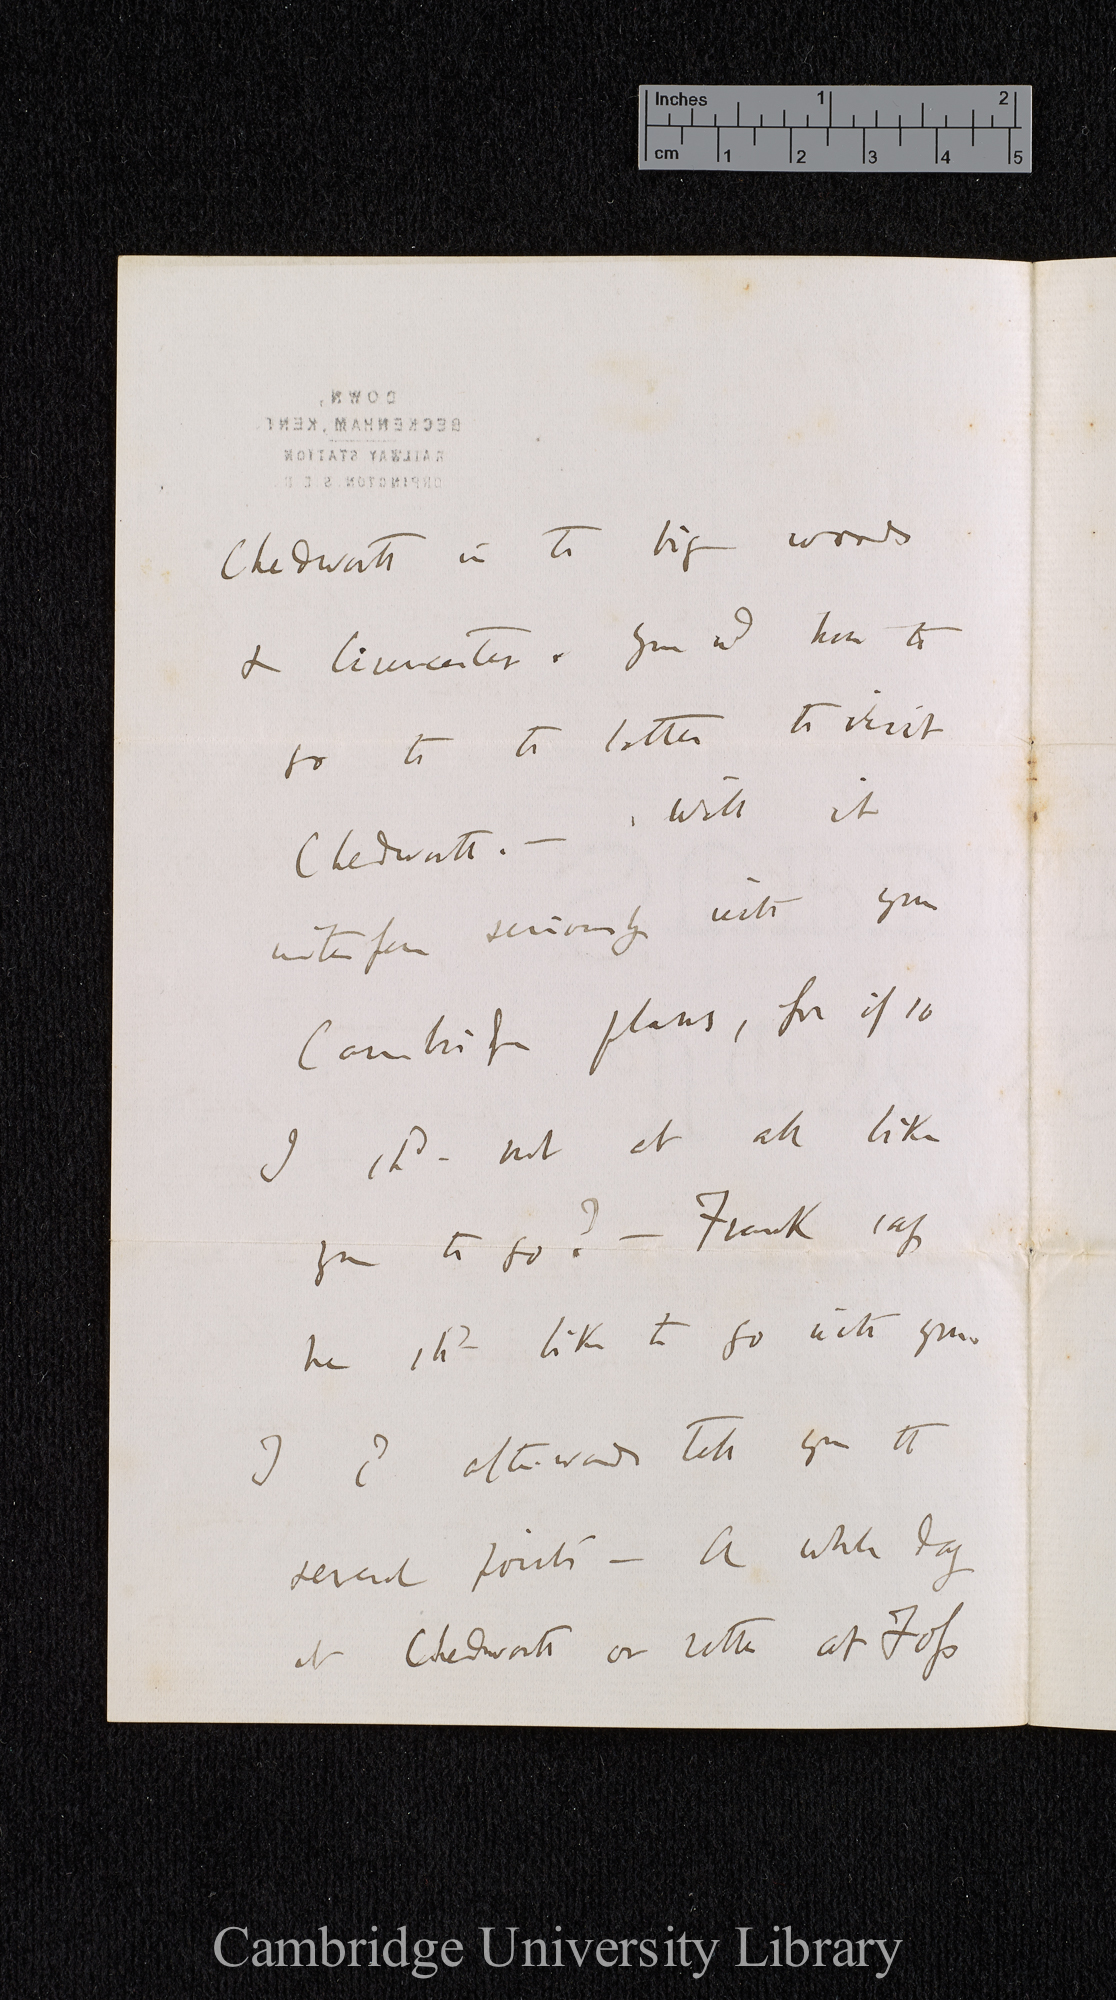 Inches 1 2
cm 1 2 3 4 5
DOWN,
BECKENHAM, KENT.
RAILWAY STATION
ORPINGTON. S.E.R.
Chedworth in the big woods
& Cirencester. You wd have to
go to the latter to visit
Chedworth.— Will it
interfere seriously with your
Cambridge plans, for if so
I shd. not at all like
you to go?— Frank says
he shd. like to go with you.
I cd afterwards tell you the
several points— A whole day
at Chedworth or rather at Foss
Cambridge University Library